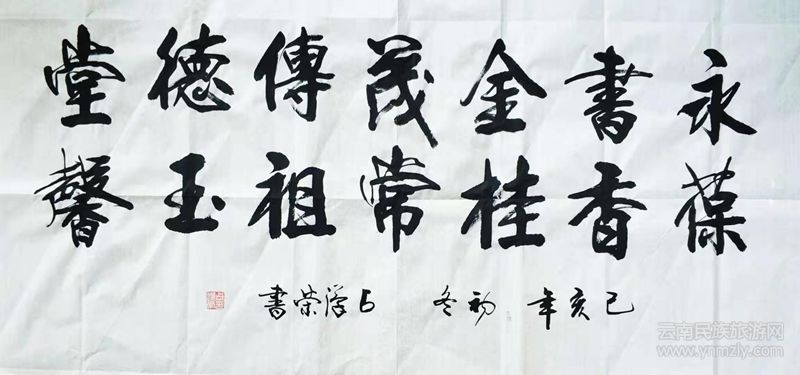 永葆
書香
金桂
茂常
傳祖
德玉
堂馨
己亥年 初冬 荣書
云南民族旅游网
www.ynmzly.com